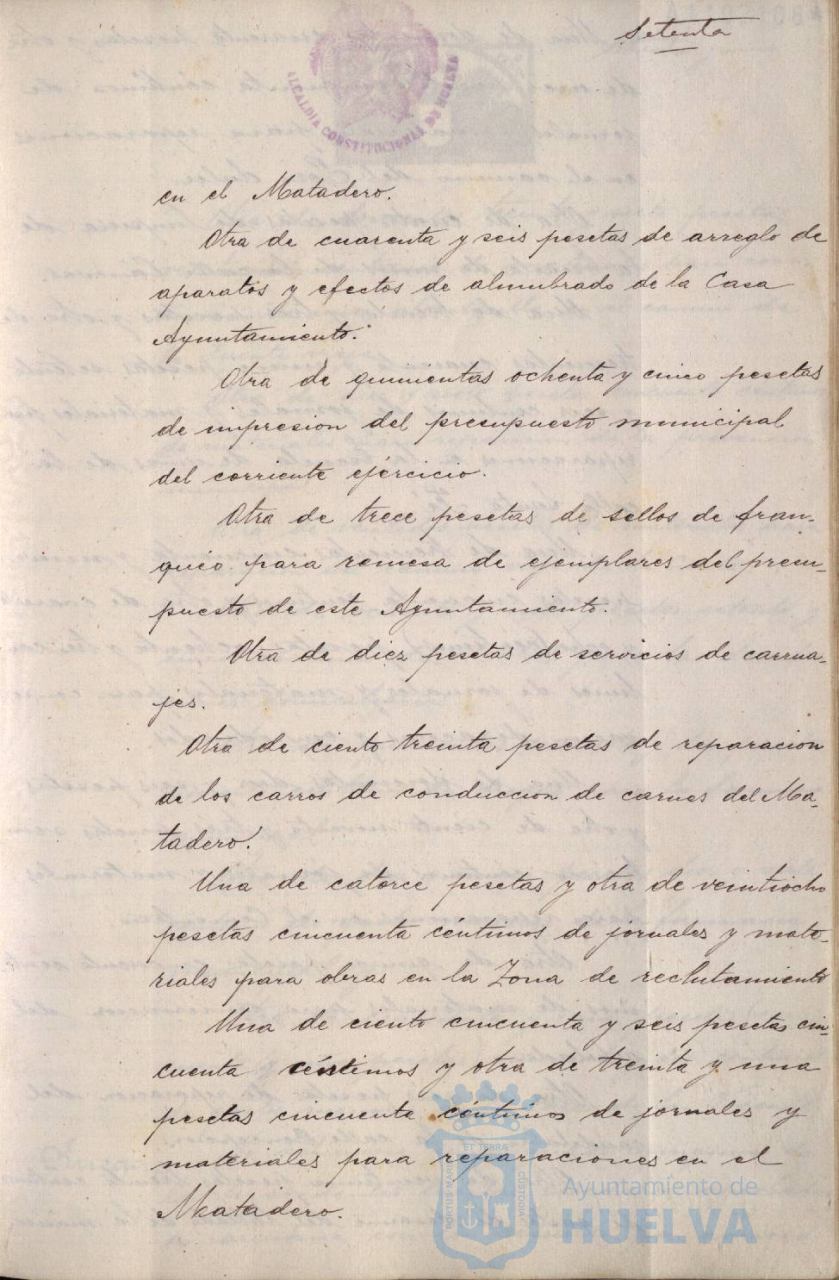 Setenta
ALCALDIA CONSTITUCIONAL DE HUELVA
en el Matadero.
Otra de cuarenta y seis pesetas de arreglo de
aparatos y efectos de alumbrado de la Casa
Ayuntamiento.
Otra de quinientas ochenta y cinco pesetas
de impresion del presupuesto municipal
del corriente ejercicio.
Otra de trece pesetas de sellos de fran-
queo para remesa de ejemplares del presu-
puesto de este Ayuntamiento.
Otra de diez pesetas de servicios de carrua-
jes.
Otra de ciento treinta pesetas de reparacion
de los carros de conduccion de carnes del Ma-
tadero.
Una de catorce pesetas y otra de veintiocho
pesetas cincuenta céntimos de jornales y mate-
riales para obras en la Zona de reclutamiento
Una de ciento cincuenta y seis pesetas cin-
cuenta céntimos y otra de treinta y una
pesetas cincuenta céntimos de jornales y
materiales para reparaciones en el
Matadero.
PORTUS MARIS ET TERRÆ CUSTODIA
Ayuntamiento de
HUELVA